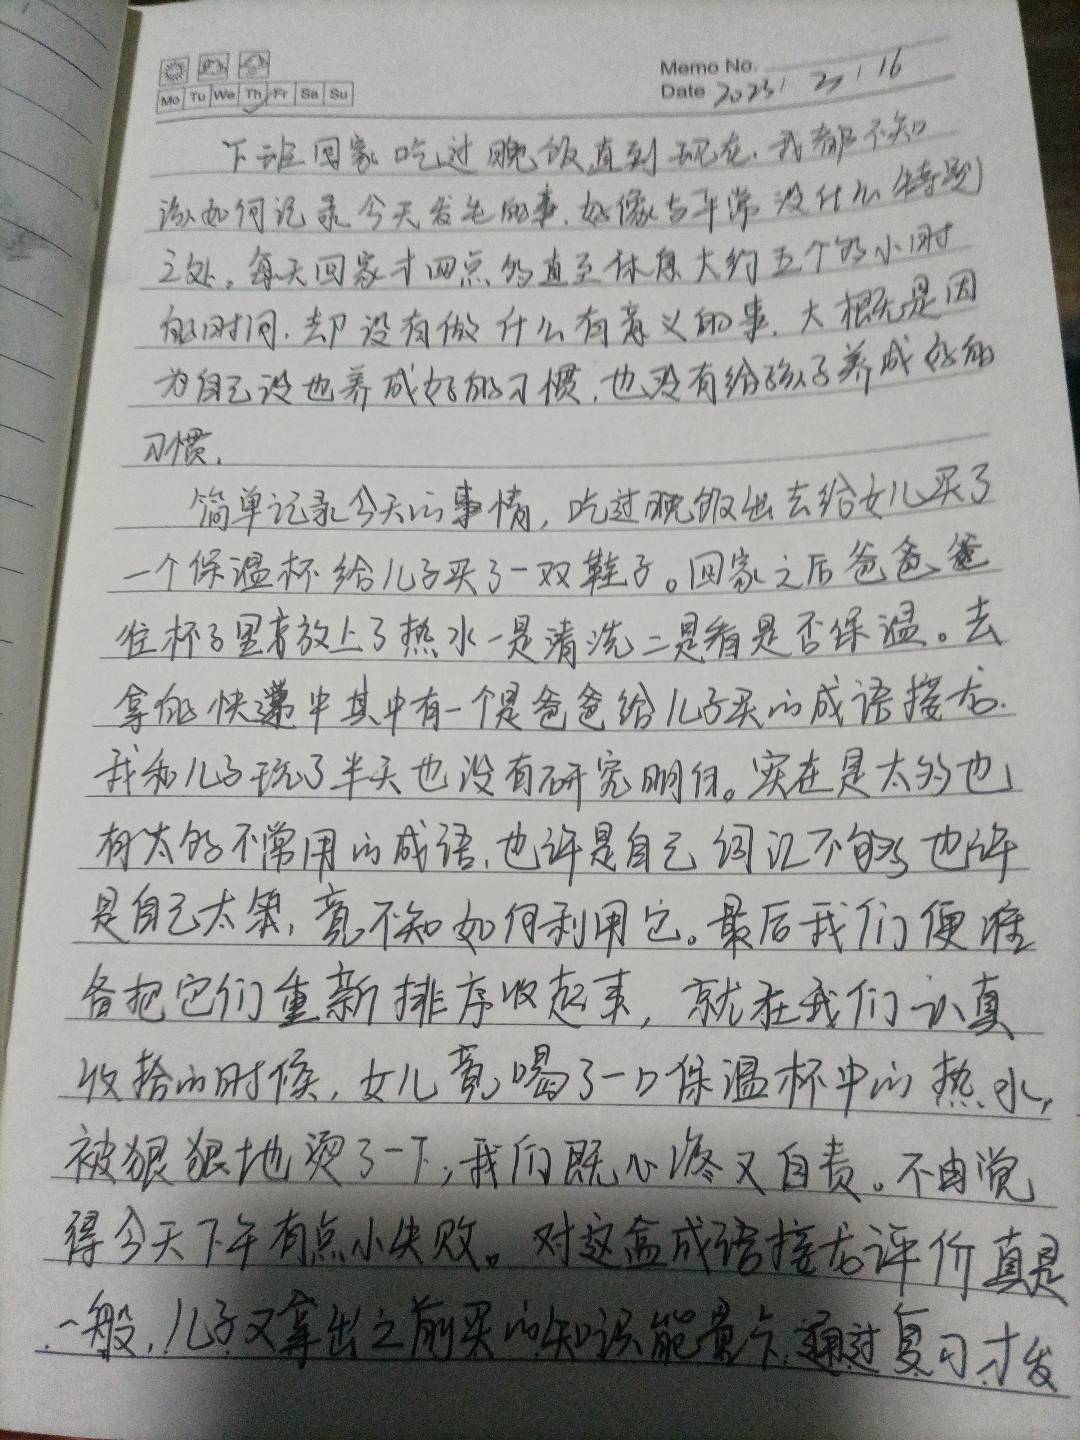 Memo No.
Mo Tu We Th Fr Sa Su
Date 2023 / 2 / 16
下班回家吃过晚饭直到现在,我都不知
该如何记录今天发生的事,好像与平常没什么特别
之处。每天回家才四点多直至休息大约五个多小时
的时间,却没有做什么有意义的事,大概是因
为自己没也养成好的习惯,也没有给孩子养成好的
习惯,
简单记录今天的事情,吃过晚饭出去给女儿买了
一个保温杯给儿子买了一双鞋子。回家之后爸爸
往杯子里放上了热水一是清洗二是看是否保温。去
拿的快递中其中有一个是爸爸给儿子买的成语接龙.
我和儿子玩了半天也没有研究明白。实在是太多也
有太多不常用的成语,也许是自己词汇不够也许
是自己太笨,竟不知如何利用它。最后我们便准
备把它们重新排序收起来,就在我们认真
收拾的时候,女儿竟喝了一口保温杯中的热水,
被狠狠地烫了一下,我们既心疼又自责。不由觉
得今天下午有点小失败。对这盒成语接龙评价真是
一般,儿子又拿出之前买的知识能量卡,通过复习才发